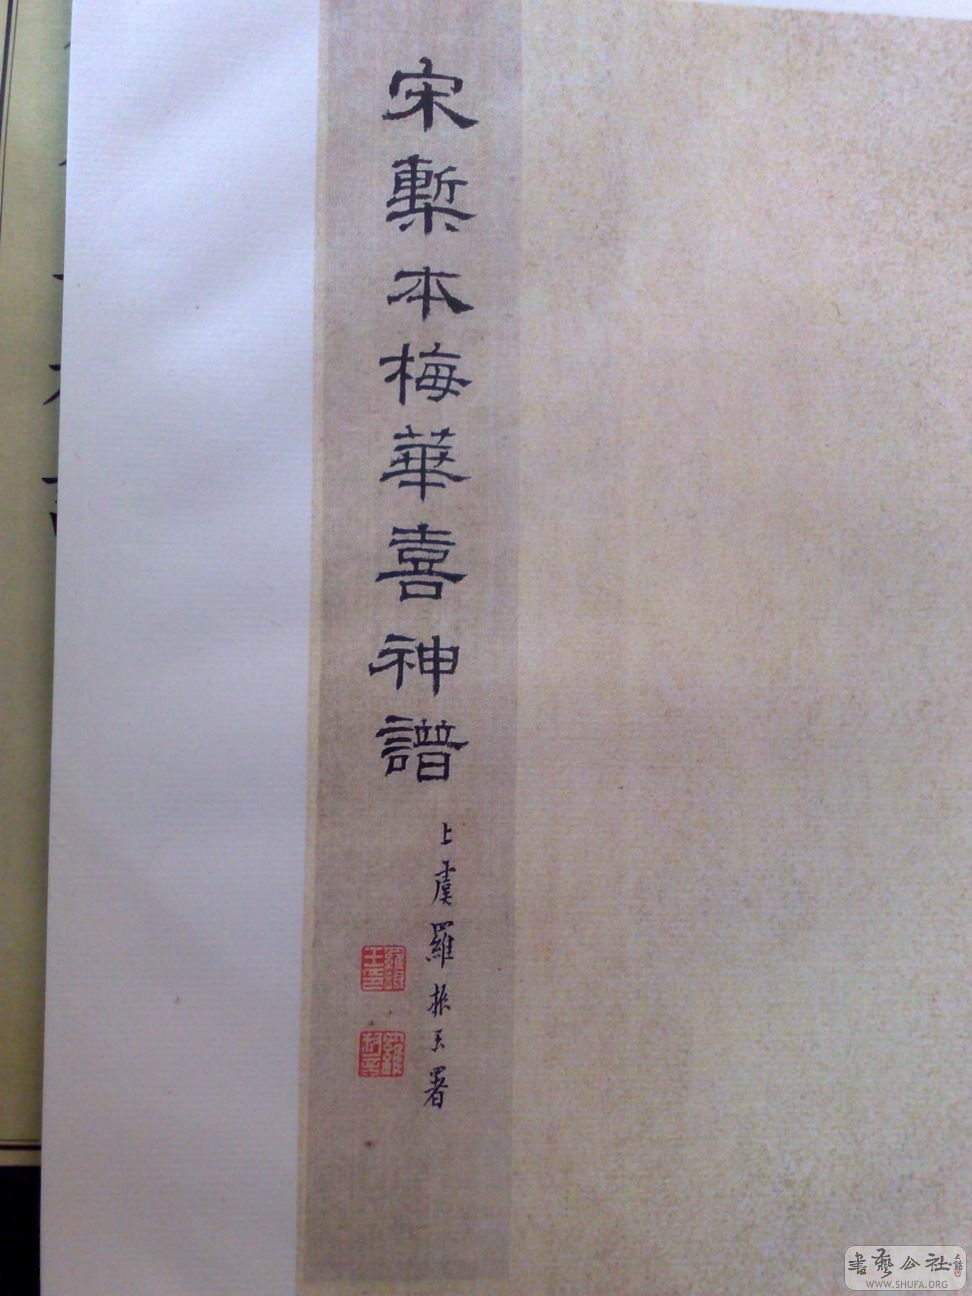 宋槧本梅華喜神譜
上虞羅振玉署
羅振玉印
書藝公社
WWW.SHUFA.ORG